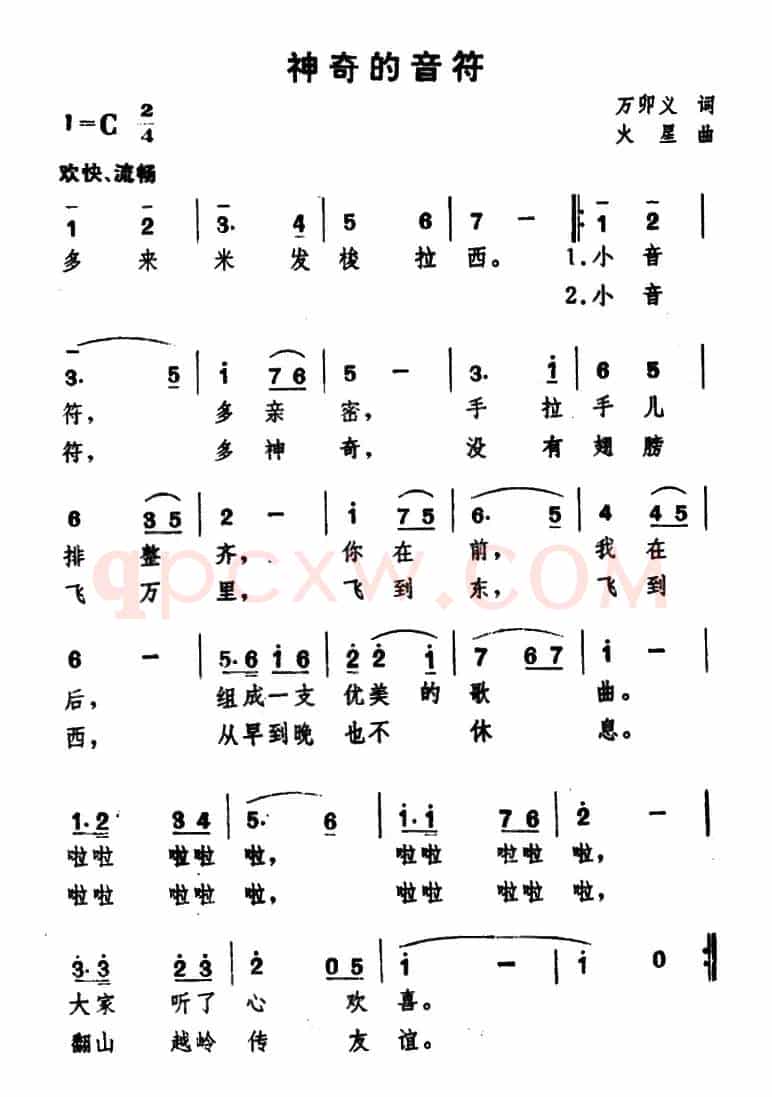 神奇的音符
1=C 2/4
万卯义 词
火星 曲
欢快、流畅
1 2 | 3. 4 | 5 6 | 7 – |: 1 2 |
多来米发梭拉西。1.小音
2.小音
3. 5 | i 76 | 5 – | 3. i | 6 5 |
符，多亲密，手拉手儿
符，多神奇，没有翅膀
6 35 | 2 – | i 75 | 6. 5 | 4 45 |
排整齐，你在前，我在
飞万里，飞到东，飞到
qpcxw.COM
6 – | 5.6 i6 | 2 2 i | 7 67 | i – |
后，组成一支优美的歌曲。
西，从早到晚也不休息。
1.2 34 | 5. 6 | i.i 76 | 2 – |
啦啦 啦啦 啦，啦啦 啦啦 啦，
啦啦 啦啦 啦，啦啦 啦啦 啦，
3.3 23 | 2 05 | i – | i 0 :|
大家听了心欢喜。
翻山越岭传友谊。